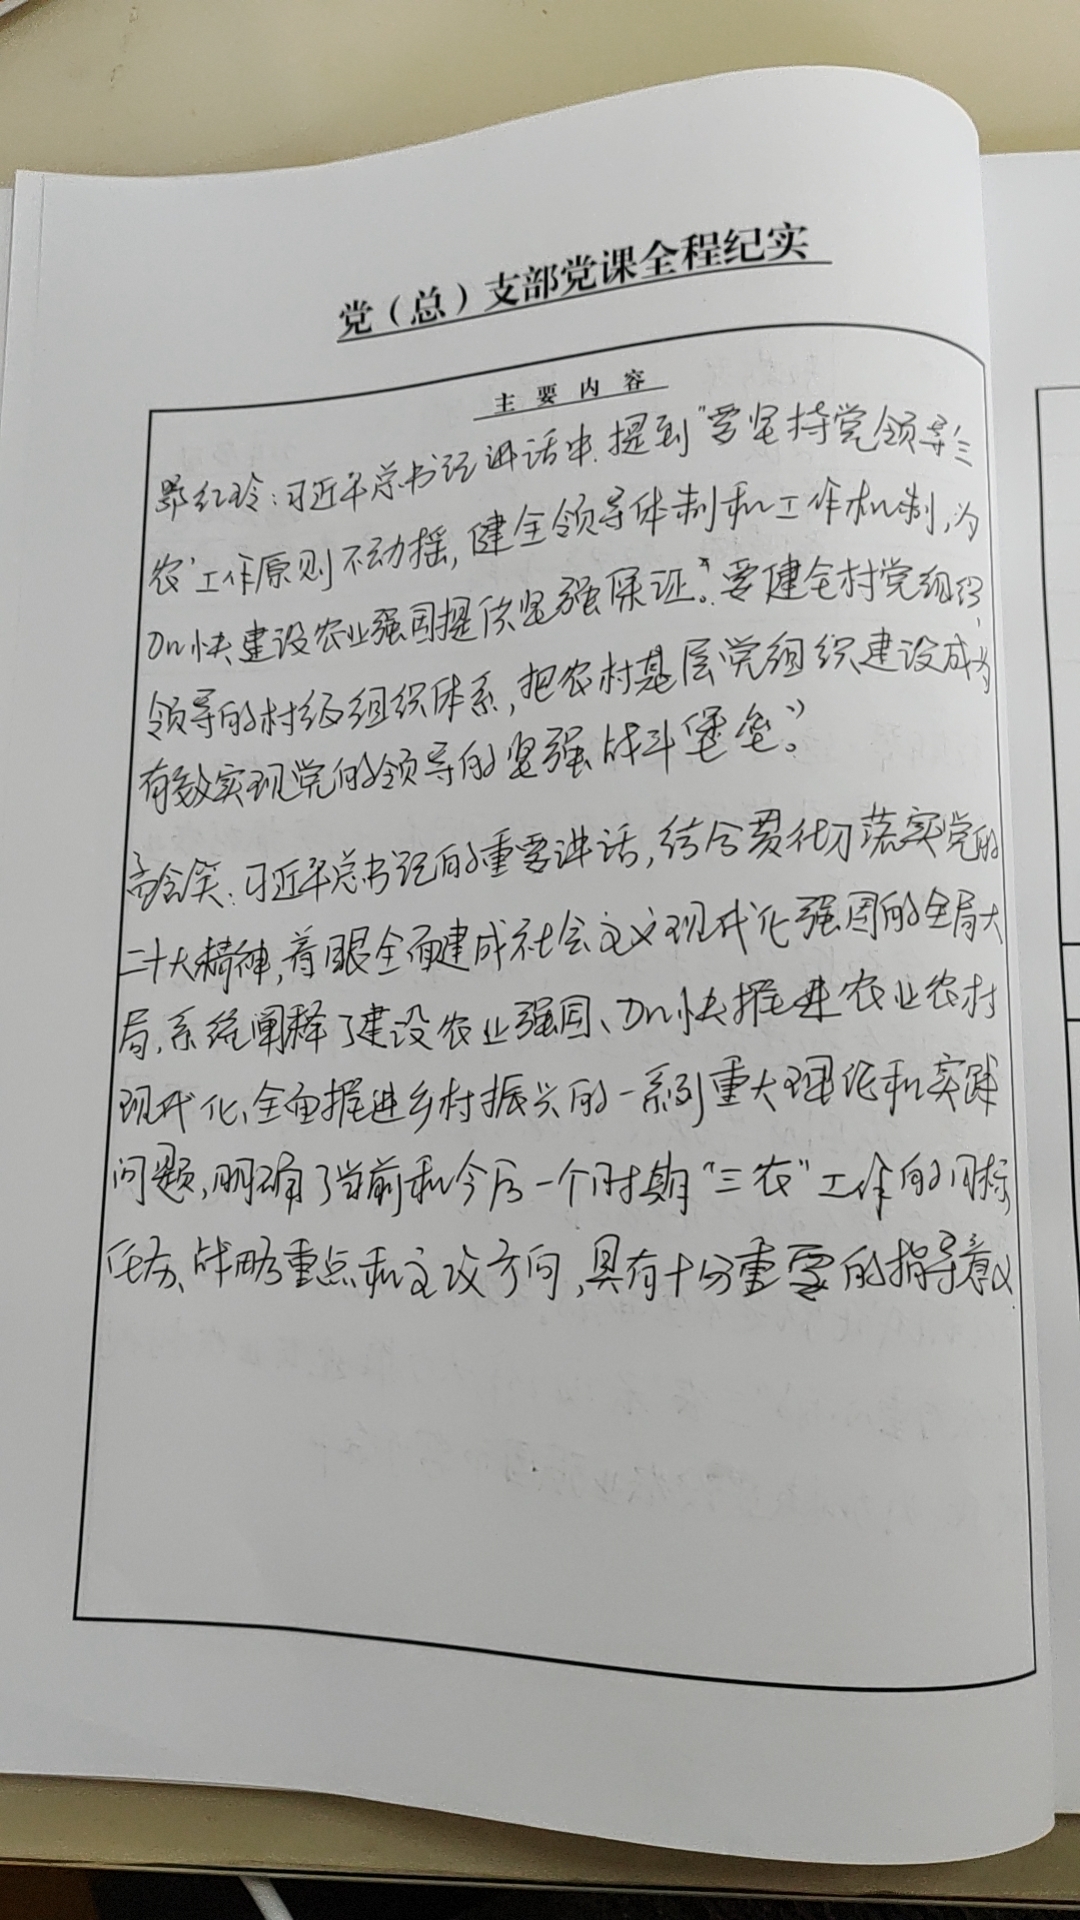 党（总）支部党课全程纪实
主要内容
鄂红玲：习近平总书记讲话中提到“要坚持党领导‘三
农’工作原则不动摇，健全领导体制和工作机制，为
加快建设农业强国提供坚强保证。”要健全村党组织
领导的村级组织体系，把农村基层党组织建设成为
有效实现党的领导的坚强战斗堡垒。”
高含笑：习近平总书记的重要讲话，结合贯彻落实党的
二十大精神，着眼全面建成社会主义现代化强国的全局大
局，系统阐释了建设农业强国、加快推进农业农村
现代化、全面推进乡村振兴的一系列重大理论和实践
问题，明确了当前和今后一个时期“三农”工作的目标
任务、战略重点和主攻方向，具有十分重要的指导意义